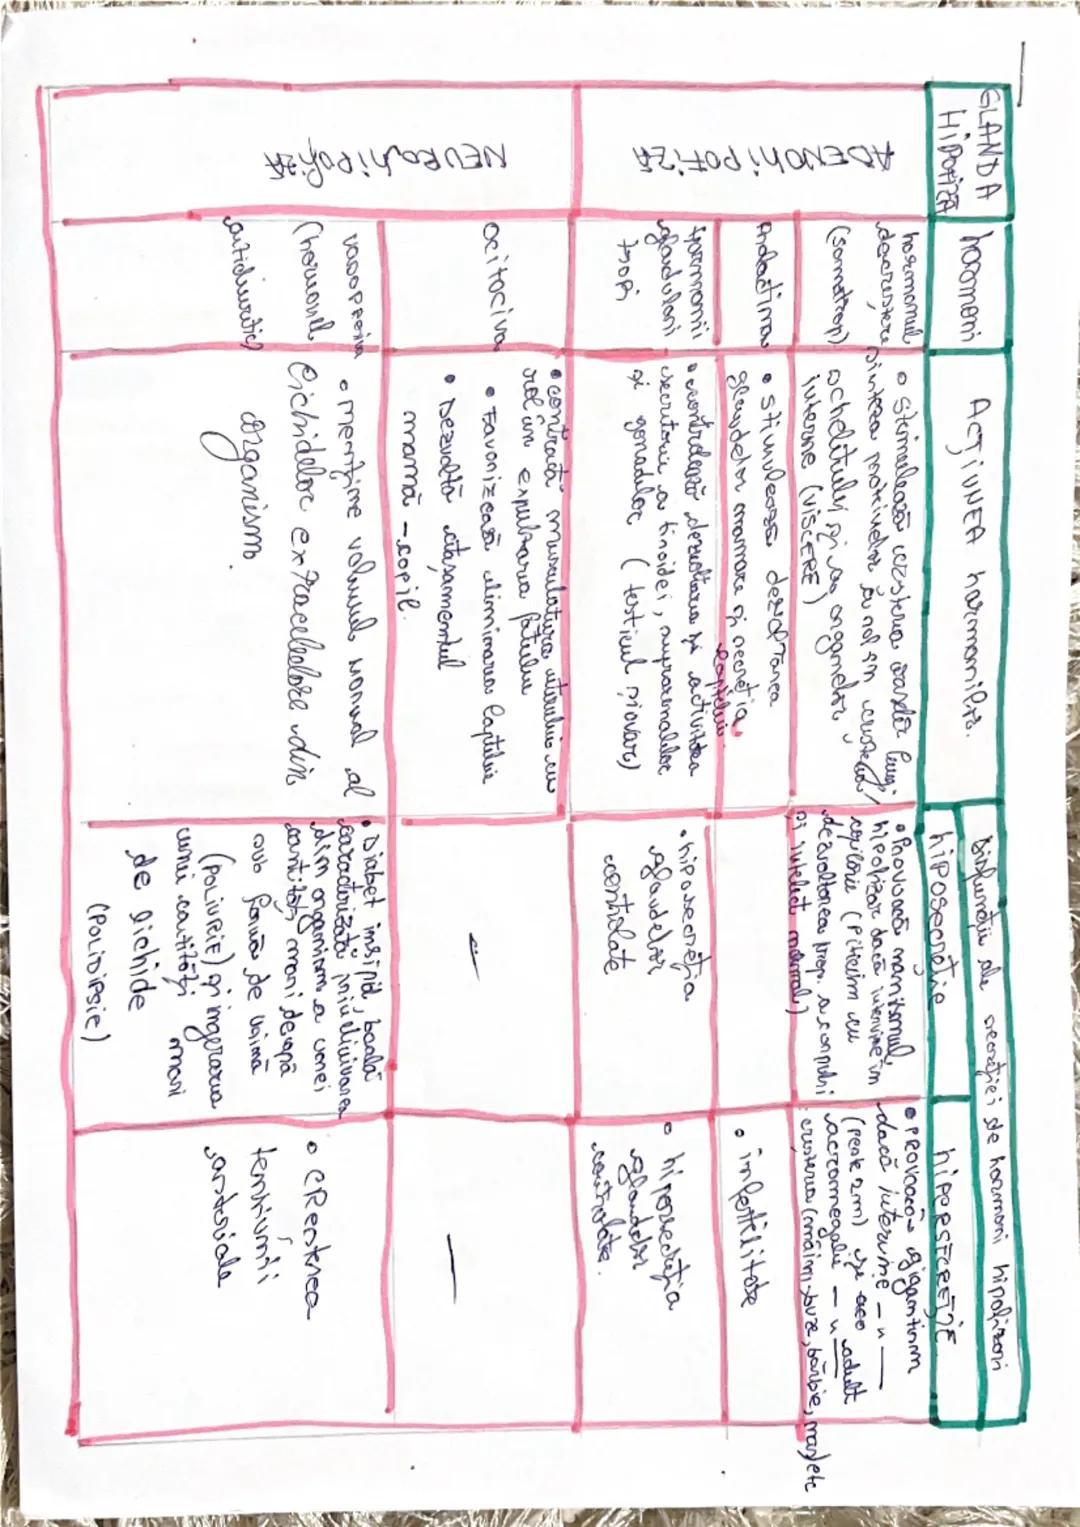 GLANDA
HiPOFiZĂ
hormoni
ACŢiUNEA hormonilor.
Disfuncţii ale secreţiei de hormoni hipofizari
hiPOSECREŢiE
hiPERSECREŢiE
ADENOhiPOFiZA
hormonul
de creştere
(somatrop)
• Stimulează creşterea oaselor lungi,
sinteza proteinelor cu rol în creşterea
scheletului şi a organelor
interne (VISCERE)
• Provoacă nanismul
hipofizar dacă intervine în
copilărie (Piticism cu
dezvoltarea prop. a corpului
şi intelect normal)
• PROVOACĂ gigantism
dacă intervine —"—
(peste 2m) iar adult
acromegalie —"—
creşterea (mâini, buze, bărbie, nas) etc
Prolactina
• stimulează dezvoltarea
glandelor mamare şi secreţia
laptelui.
• infertilitate
hormonii
glandulari
tropi
• controlează dezvoltarea şi activitatea
secretorie a tiroidei, suprarenalelor
şi gonadelor (testicul şi ovare)
• hiposecreţia
glandelor
controlate
• hipersecreţia
glandelor
controlate.
NEUROhiPOfiZA
OCiTOCiNA
• contractă musculatura uterului cu
rol în expulzarea fătului
• Favorizează eliminarea laptelui
• Dezvoltă ataşamentul
mamă - copil.
—
—
vasopresina
(hormonul
antidiuretic)
• menţine volumul normal al
lichidelor extracelulare din
organism.
• Diabet insipid, boală
caracterizată prin eliminarea
din organism a unei
cantităţi mari de apă
sub formă de urină
(POLIURIE) şi ingerarea
unei cantităţi mari
de lichide
(POLIDIPSIE)
• CREşterea
tensiunii
arteriale